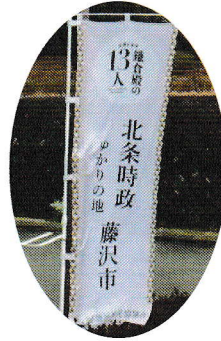 鎌倉殿の
13人
北条時政
ゆかりの地
藤沢市